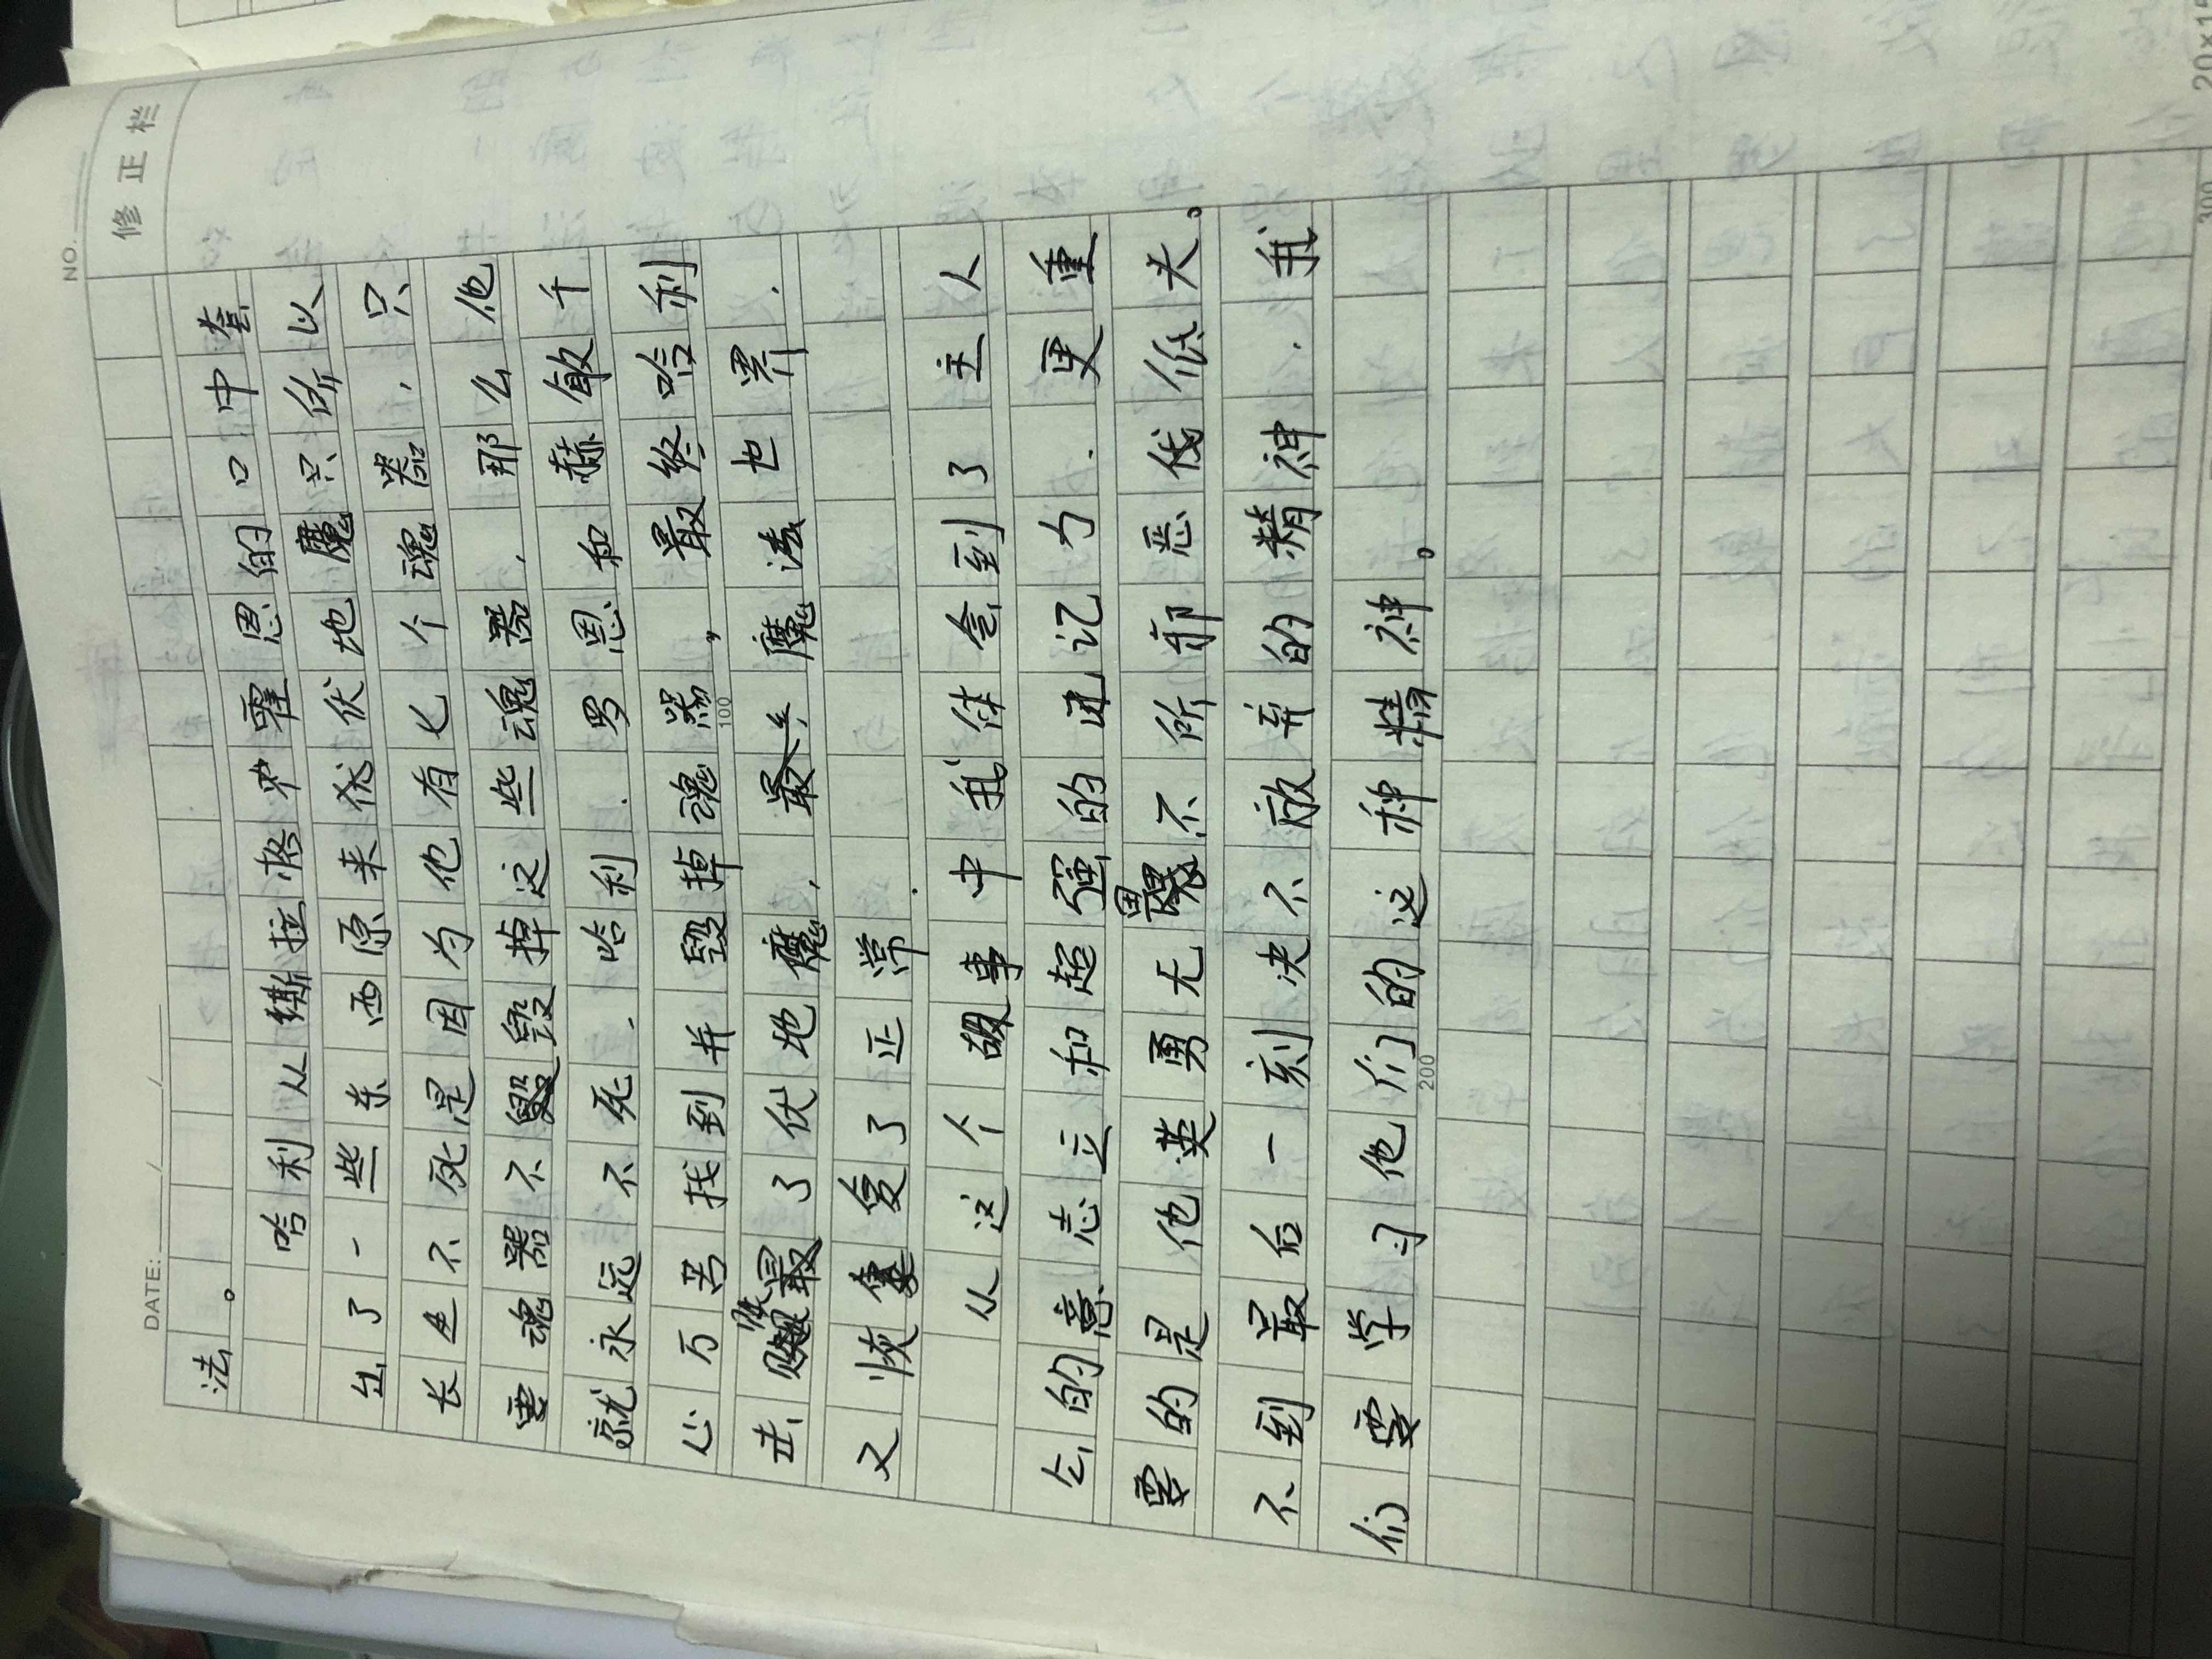 NO.
DATE: / /
修正栏
法。
哈利从斯拉格霍恩的口中套
出了一些东西原来伏地魔只所以
长生不死是因为他有七个魂器,只
要魂器不毁掉这些魂器,那么他
就永远不死.哈利.罗恩和赫敏千
心万苦找到并毁掉魂器,最终哈利
战胜了伏地魔,魔法也界.
又恢复了正常.
从这个故事中我体会到了主人
公的意志立和超强的记力.更重
要的是他英勇无畏不所邪恶低头。
不到最后一刻决不放弃的精神.我
们要学习他们的这种精神。
100
200
300
20×15